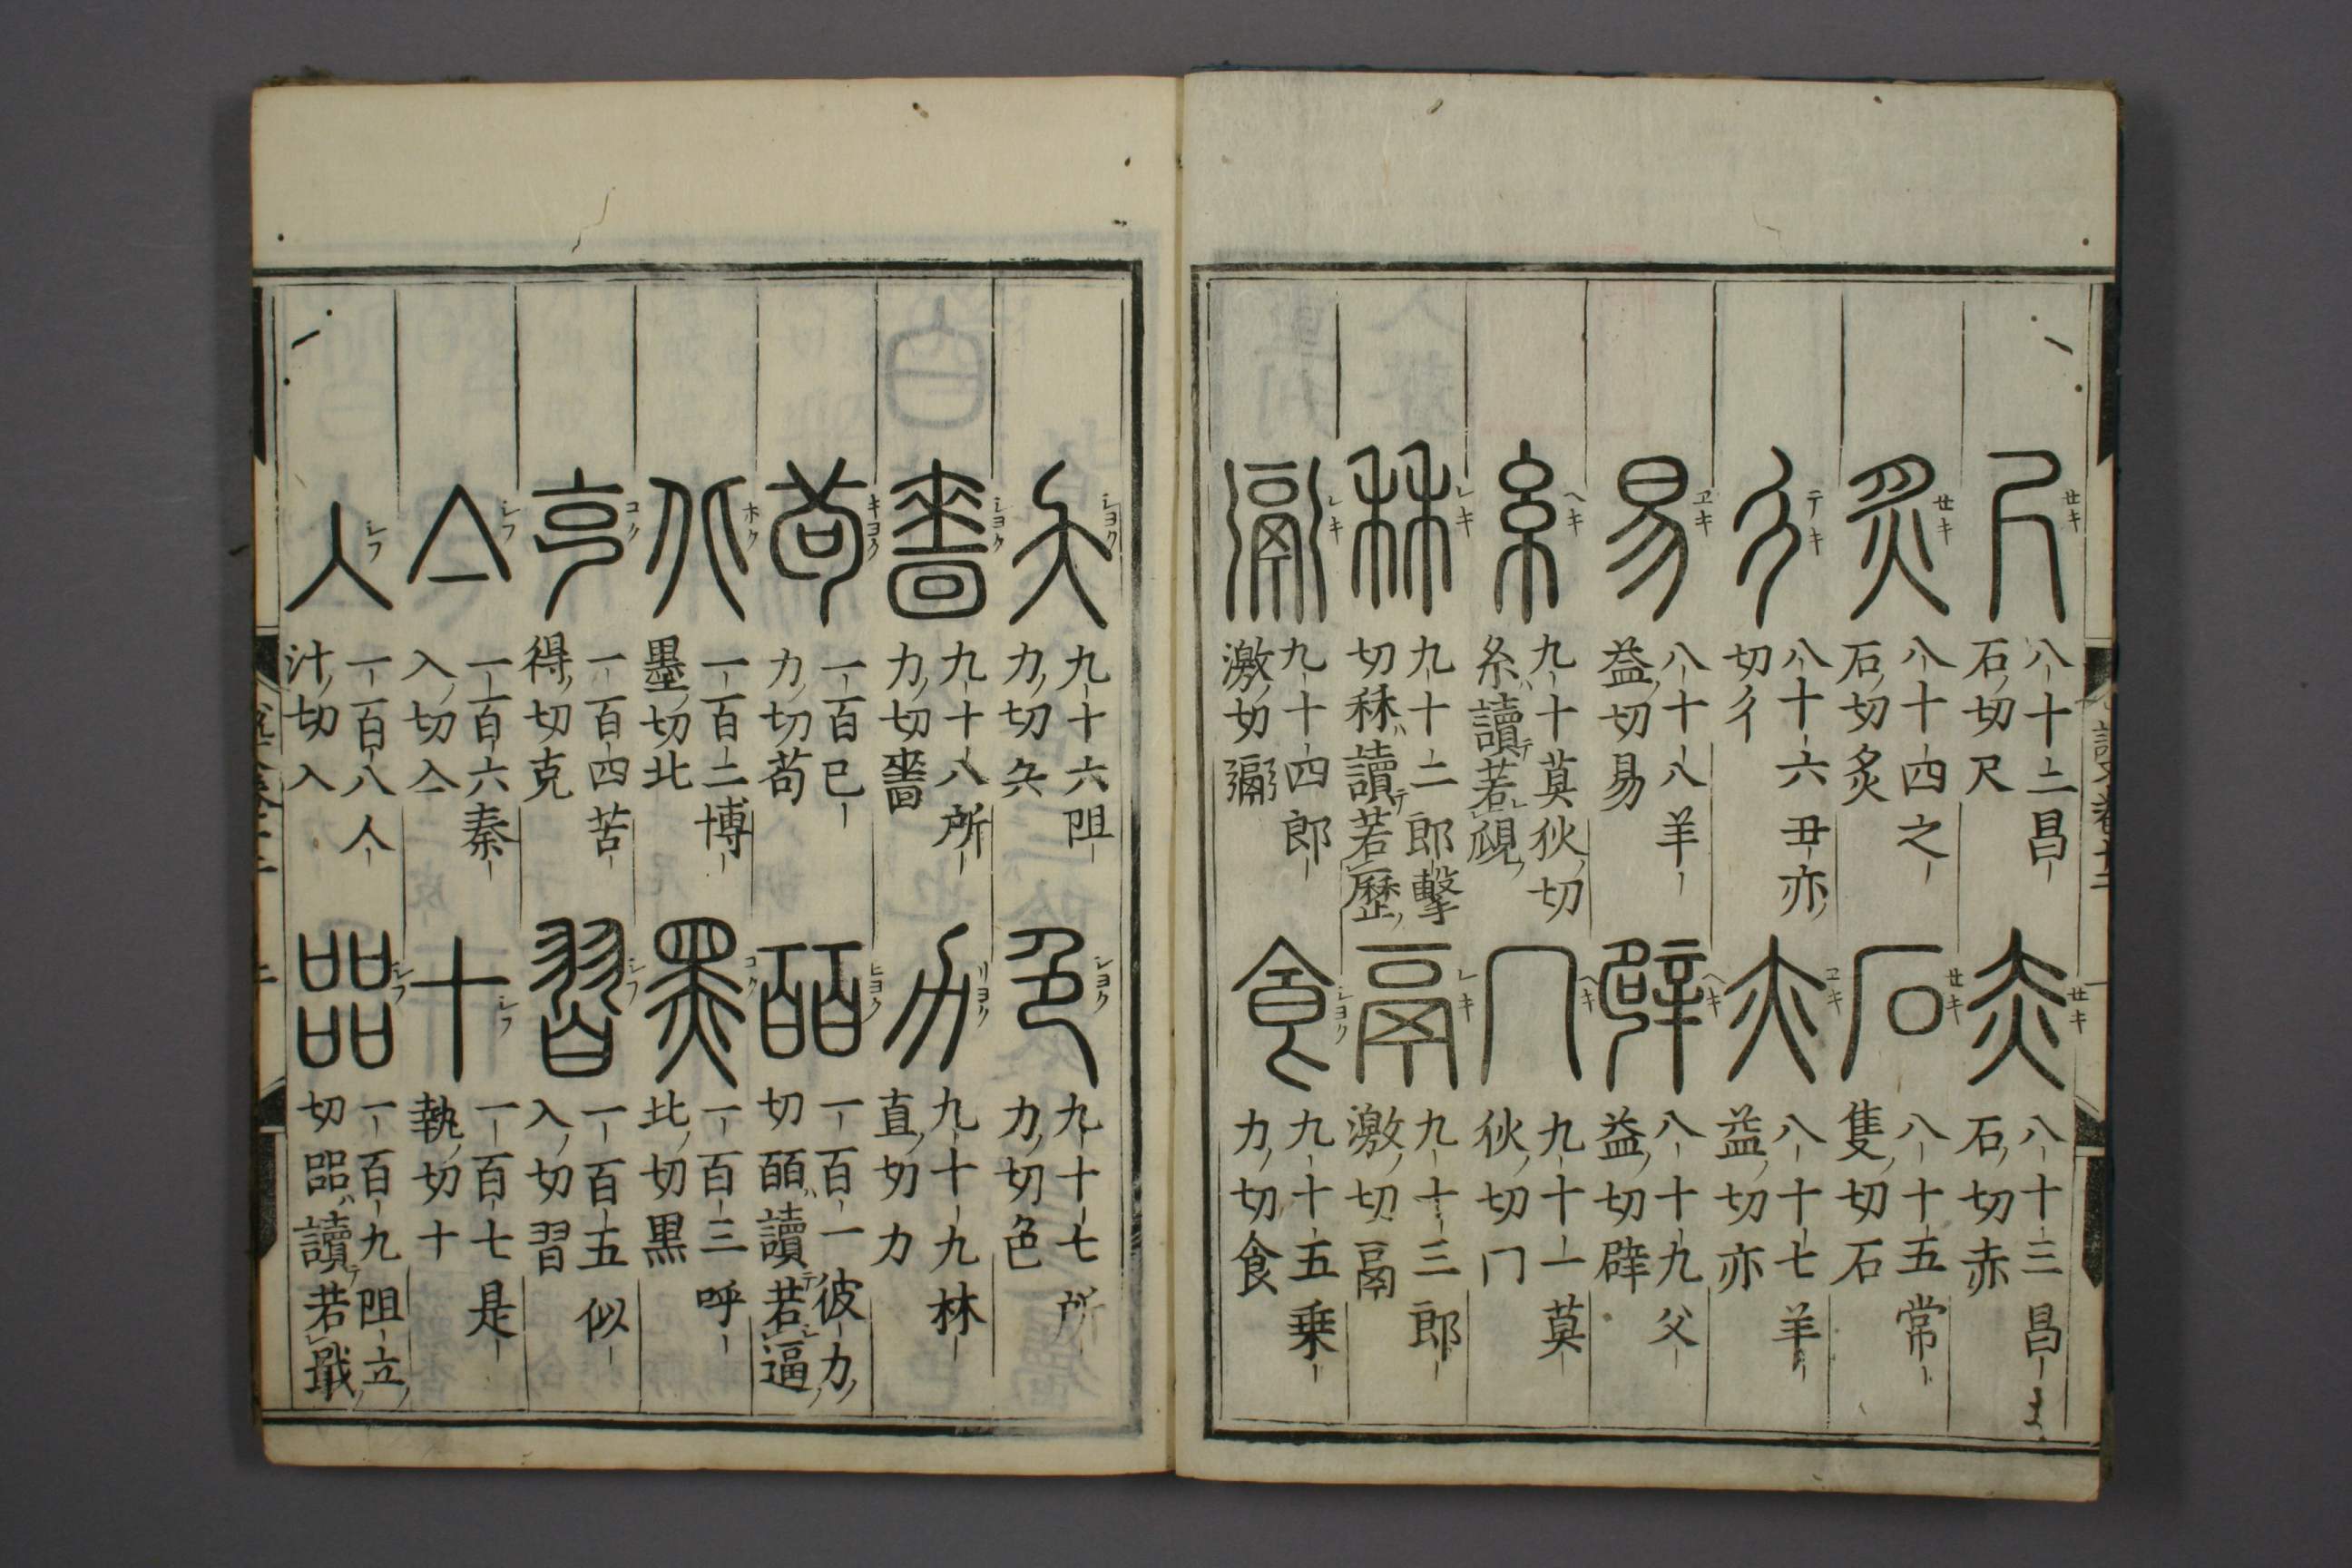 尺 セキ 八十二昌石切尺
赤 セキ 八十三昌石切赤
炙 セキ 八十四之石切炙
石 セキ 八十五常隻切石
彳 テキ 八十六丑亦切彳
亦 ヱキ 八十七羊益切亦
易 ヱキ 八十八羊益切易
辟 ヘキ 八十九父益切辟
糸 ヘキ 九十莫狄切糸讀若覛
冂 ヘキ 九十一莫狄切冂
秝 レキ 九十二郎擊切秝讀若歷
鬲 レキ 九十三郎激切鬲
䰜 レキ 九十四郎激切䰜
食 シヨク 九十五乗力切食
夨 シヨク 九十六阻力切夨
色 シヨク 九十七所力切色
嗇 シヨク 九十八所力切嗇
力 リヨク 九十九林直切力
茍 キヨク 一百己力切茍
皕 ヒヨク 一百一彼力切皕讀若逼
北 ホク 一百二博墨切北
黒 コク 一百三呼北切黒
克 コク 一百四苦得切克
習 シフ 一百五似入切習
亼 シフ 一百六秦入切亼
十 シフ 一百七是執切十
入 シフ 一百八人汁切入
㗊 シフ 一百九阻立切㗊讀若戢